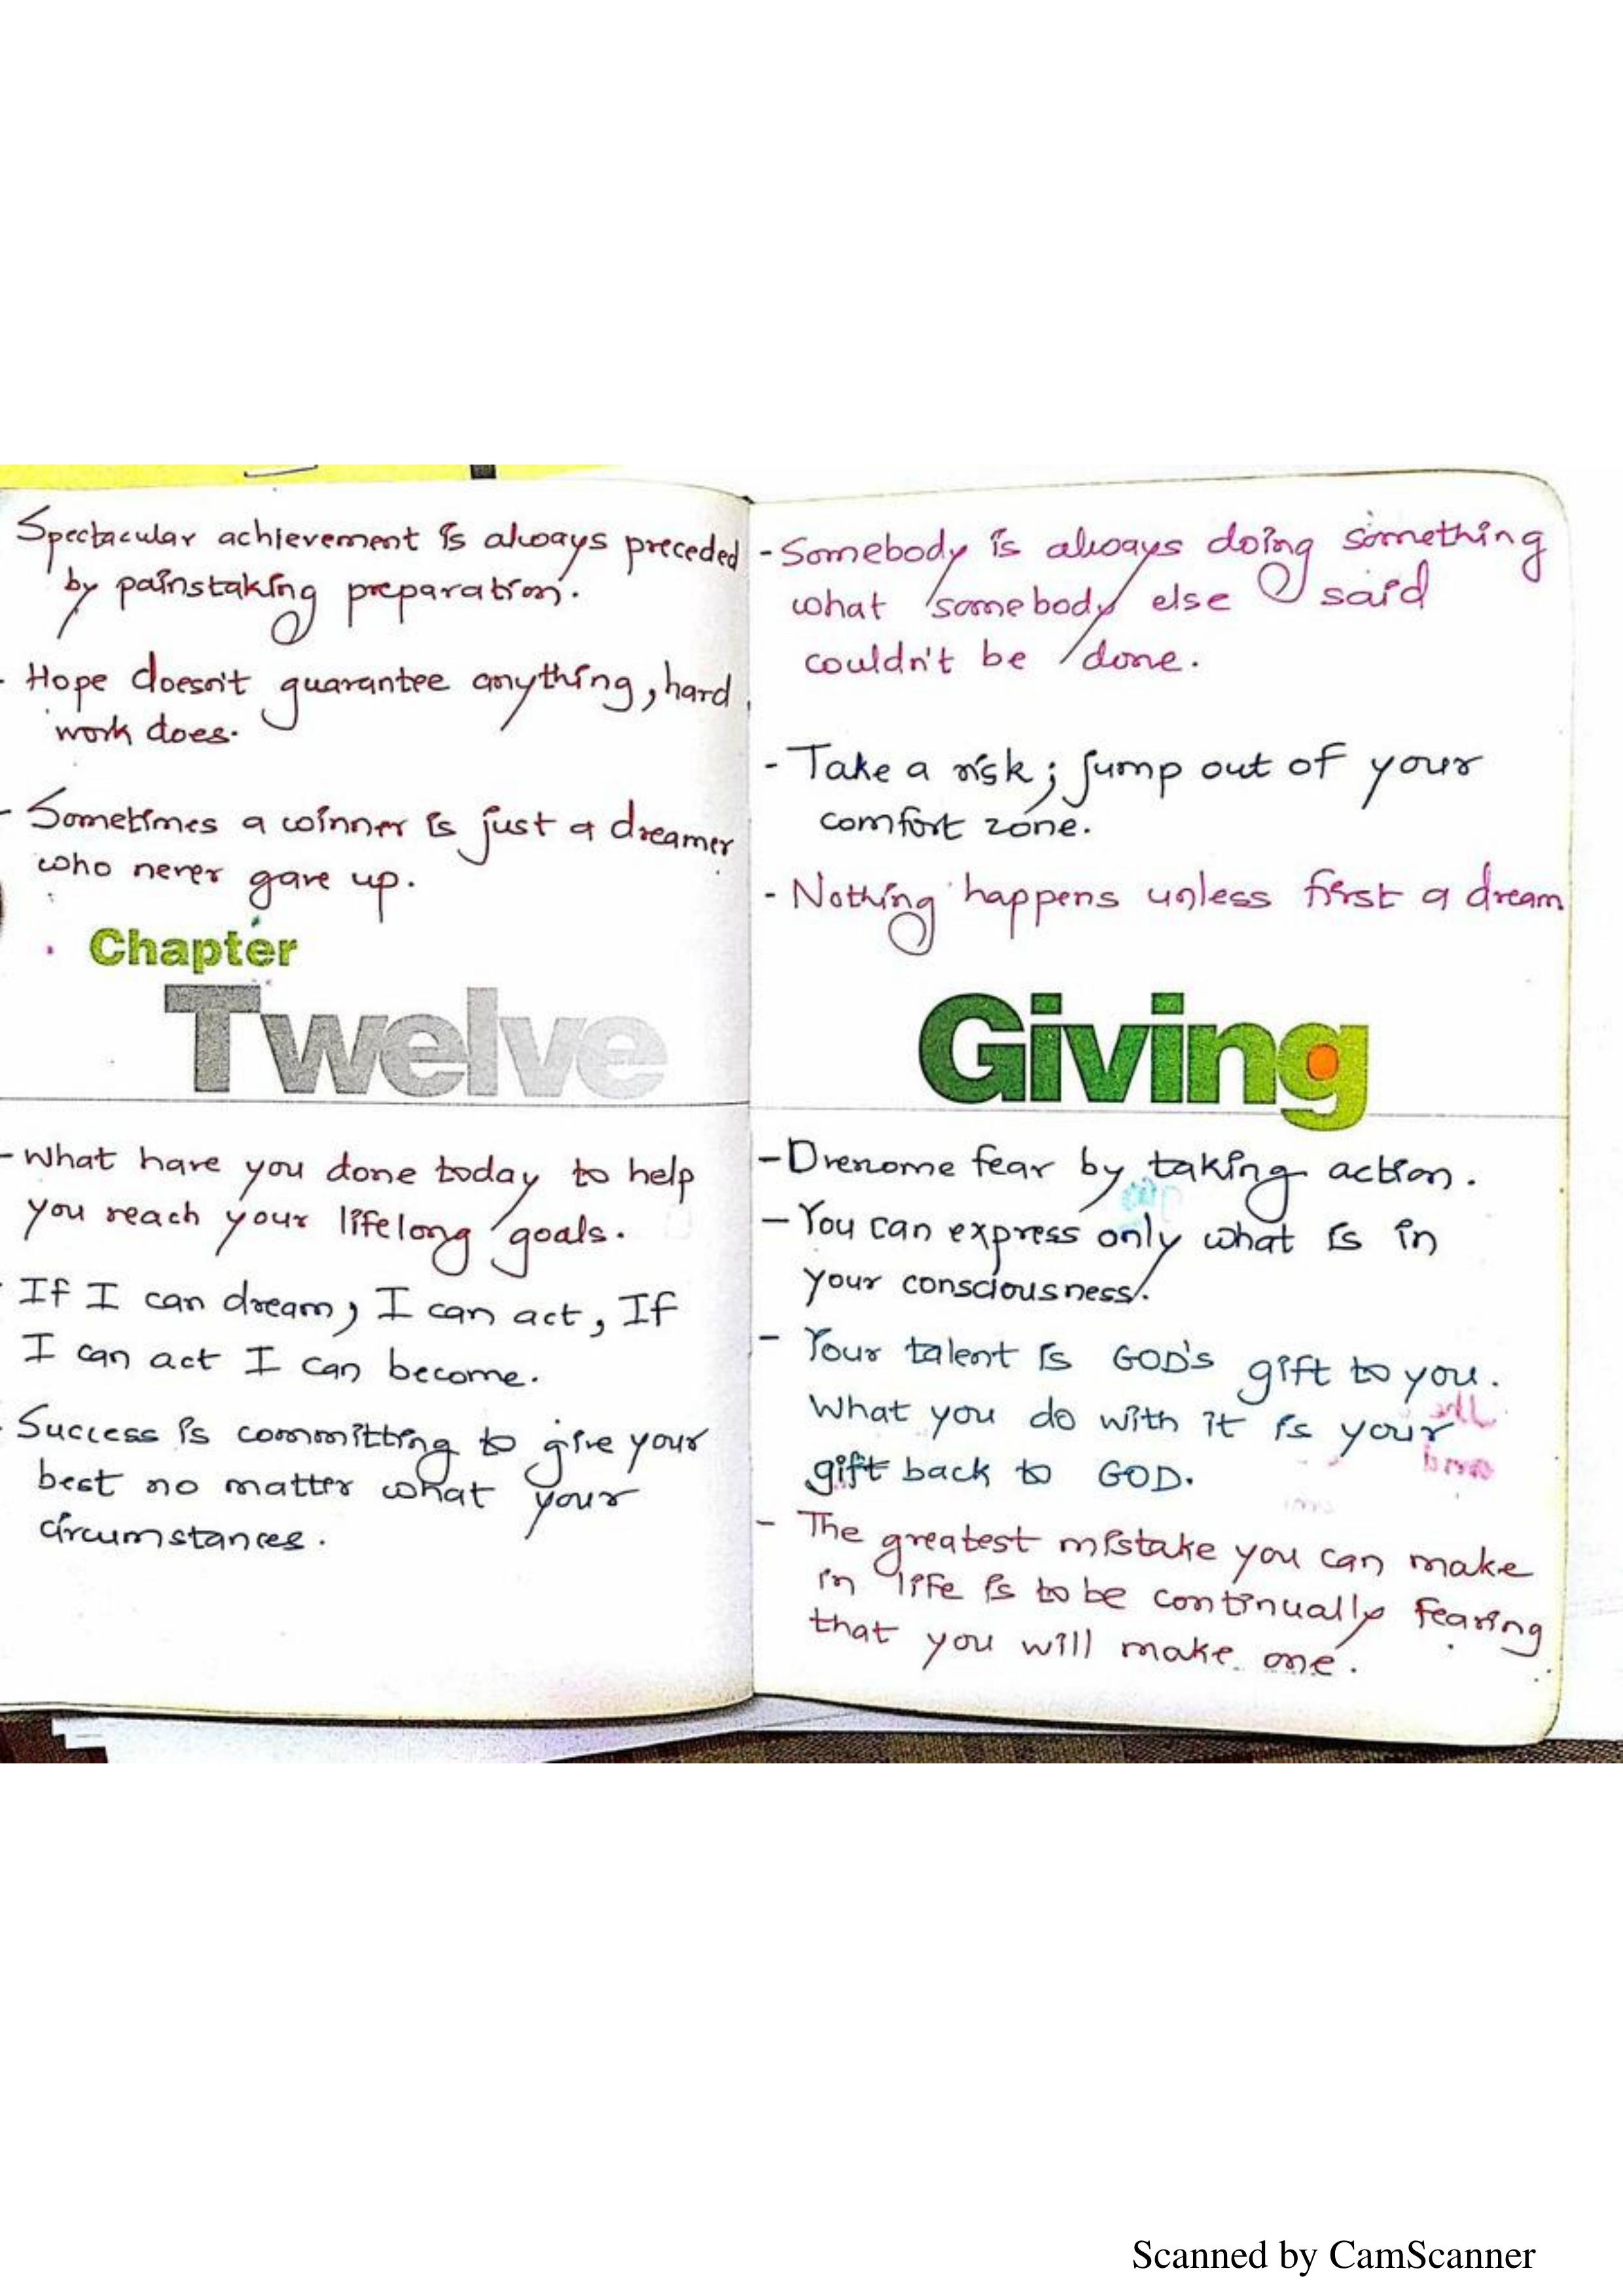 Spectacular achievement is always preceded
by painstaking preparation.
- Hope doesn't guarantee anything, hard
work does.
- Sometimes a winner is just a dreamer
who never gave up.
Chapter
Twelve
- What have you done today to help
you reach your lifelong goals.
- If I can dream, I can act, If
I can act I can become.
- Success is committing to give your
best no matter what your
circumstances.
- Somebody is always doing something
what somebody else said
couldn't be done.
- Take a risk; jump out of your
comfort zone.
- Nothing happens unless first a dream
Giving
- fear by taking action.
- You can express only what is in
your consciousness.
- Your talent is GOD's gift to you.
What you do with it is your
gift back to GOD.
- The greatest mistake you can make
in life is to be continually fearing
that you will make one.
Scanned by CamScanner